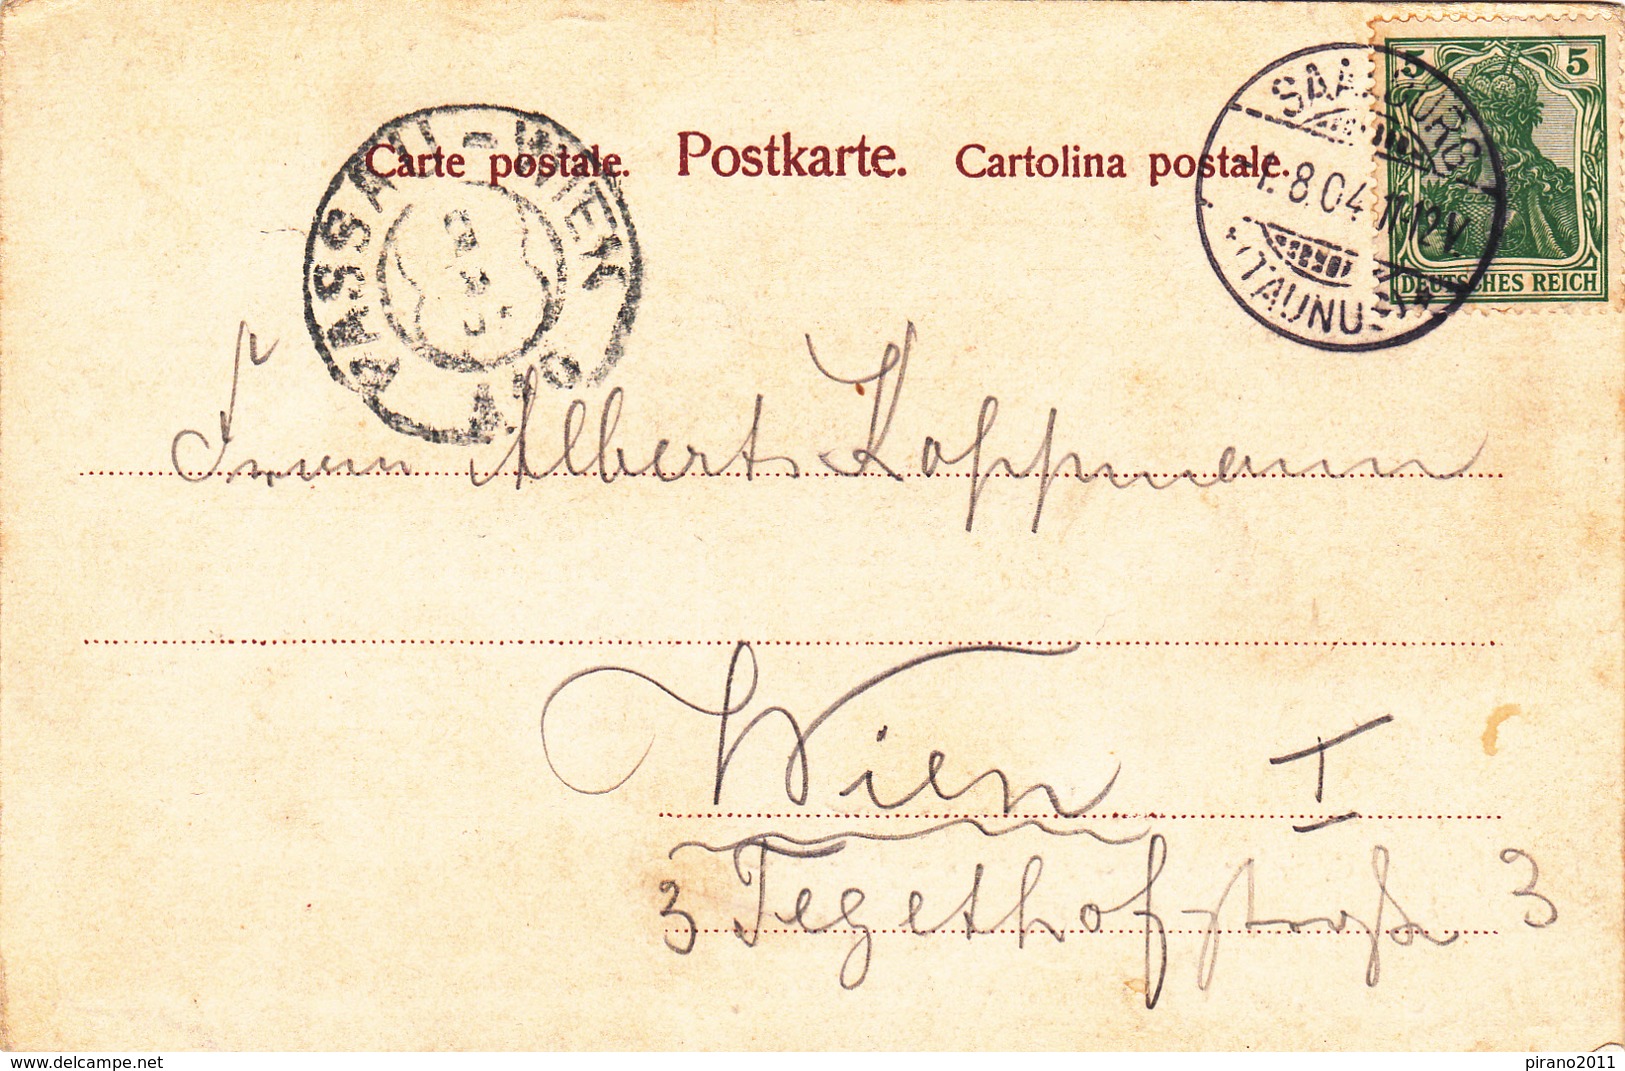 Carte postale. Postkarte. Cartolina postale.
PASSAU - WIEN
SAALBURG
1.8.04 11-12V.
(TAUNUS)
5 5
DEUTSCHES REICH
Frau Albert Koppmann
Wien I
3 Tegethofstraße 3
www.delcampe.net
pirano2011